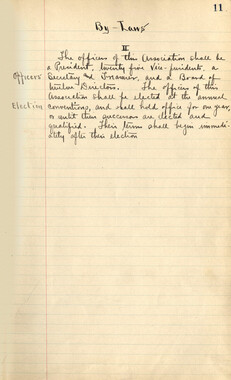 11
By-Laws
II
The officers of this Association shall be
a President, twenty five Vice-presidents, a
Officers Secretary and Treasurer, and a Board of
twelve Directors. The officers of this
Association shall be elected at the annual
Election conventions, and shall hold office for one year,
or until their successors are elected and
qualified. Their term shall begin immedi-
ately after their election